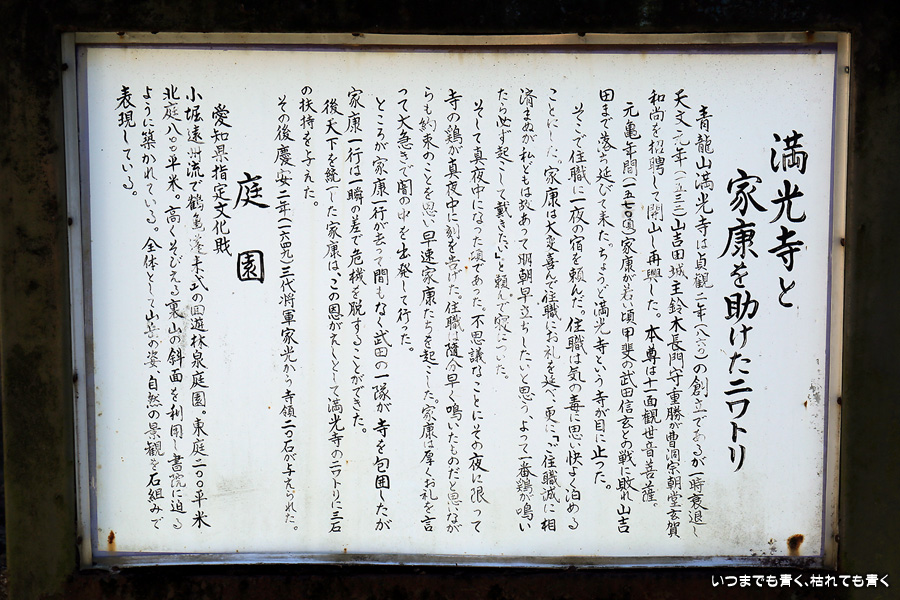 満光寺と
家康を助けたニワトリ
青龍山満光寺は貞観二年(八六〇)の創立であるが一時衰退し
天文元年(一五三二)山吉田城主鈴木長門守重勝が曹洞宗朝堂玄賀
和尚を招聘して開山し再興した。本尊は十一面観世音菩薩。
元亀年間(一五七〇頃)家康が若い頃甲斐の武田信玄との戦に敗れ山吉
田まで落ち延びて来た。ちょうど満光寺という寺が目に止った。
そこで住職に一夜の宿を頼んだ。住職は気の毒に思い快よく泊める
ことにした。家康は大変喜んで住職にお礼を延べ、更に「ご住職誠に相
済まぬが私どもは故あって明朝早立ちしたいと思う。よって一番鶏が鳴い
たら必ず起して戴きたい。」と頼んで寝についた。
そして真夜中になった頃であった。不思議なことにその夜に限って
寺の鶏が真夜中に刻を告げた。住職は随分早く鳴いたものだと思いなが
らも約束のことを思い早速家康たちを起こした。家康は厚くお礼を言
って大急ぎで闇の中を出発して行った。
ところが家康一行が去って間もなく武田の一隊が寺を包囲したが
家康一行は一瞬の差で危機を脱することができた。
後天下を統一した家康は、この恩がえしとして満光寺のニワトリに三石
の扶持を与えた。
その後慶安二年(一六四九)三代将軍家光から寺領二〇石が与えられた。
庭園
愛知県指定文化財
小堀遠州流で鶴亀蓬莱式の回遊林泉庭園。東庭二〇〇平米
北庭八〇〇平米。高くそびえる裏山の斜面を利用し書院に迫る
ように築かれている。全体として山岳の姿、自然の景観を石組みで
表現している。
いつまでも青く、枯れても青く